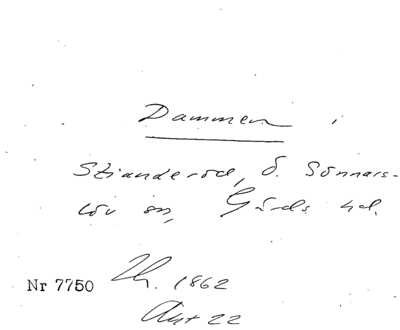 Dammen i
Stianderöd, Ö. Sönnars-
löv sn, Gärds hd.
Nr 7750 Lh. 1862
Akt 22